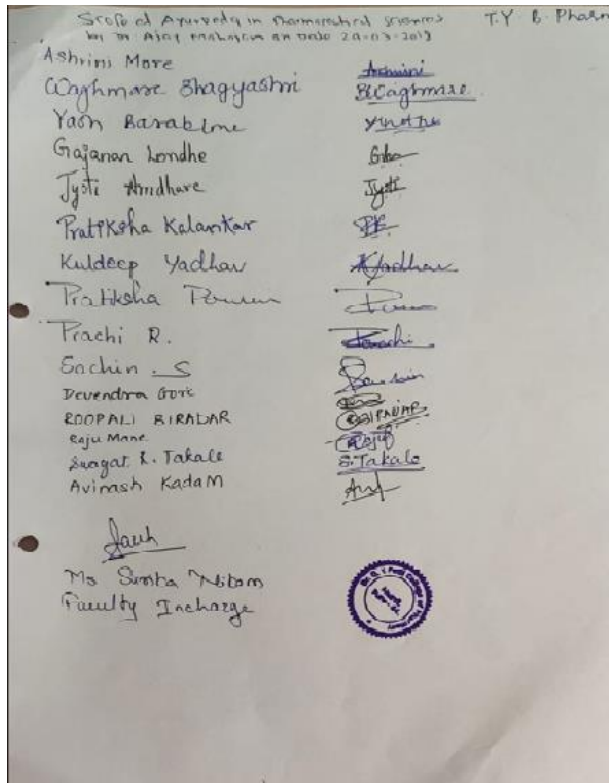 Scope of Ayurveda in Pharmaceutical Sciences T.Y. B. Pharm
by Dr Ajay on Date 20-03-2019
Ashrini More
Waghmare Bhagyashri BWaghmare.
Yash
Gajanan Londhe
Jyoti Andhare Jyoti
Pratiksha Kalamkar PK
Kuldeep Yadhav KYadhav
Pratiksha
Prachi R. Prachi
Sachin . S
Devendra Gore
ROOPALI BIRADAR BIRADAR
Raju Mane Raju
Swagat. R. Takale S.Takale
Avinash KadaM
Ms Simha Nikam
Faculty Incharge